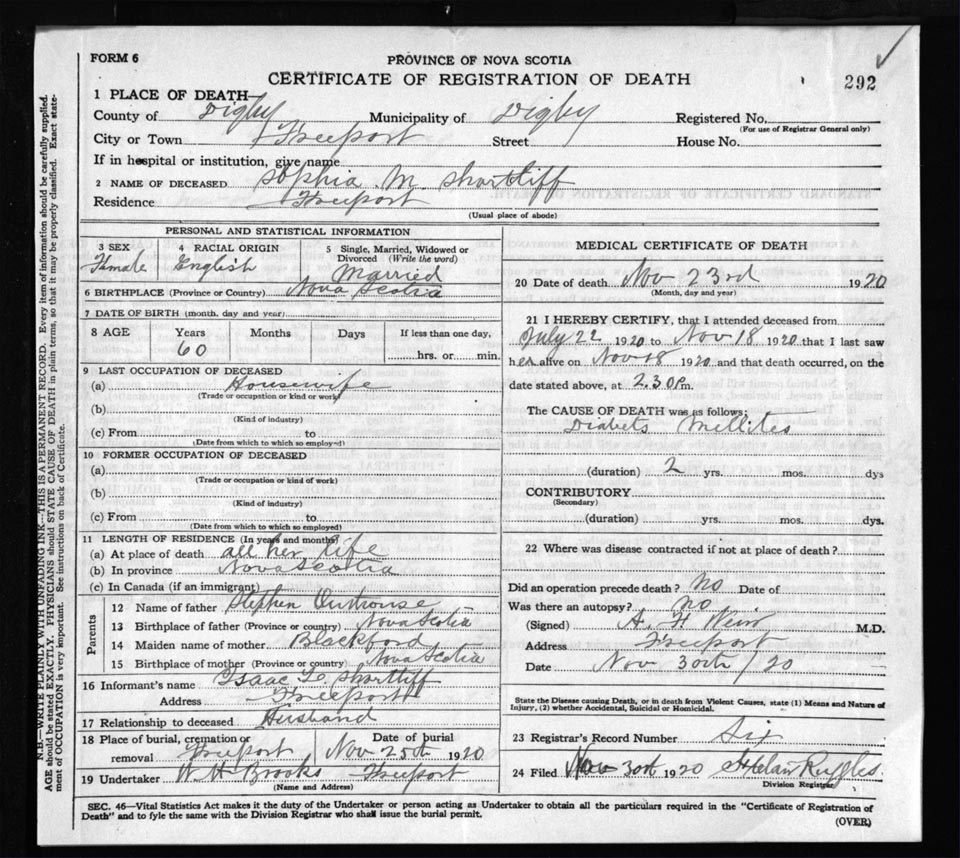 FORM 6
PROVINCE OF NOVA SCOTIA
CERTIFICATE OF REGISTRATION OF DEATH
292
1 PLACE OF DEATH—
County of Digby Municipality of Digby Registered No.
(For use of Registrar General only)
City or Town Freeport Street House No.
If in hospital or institution, give name
2 NAME OF DECEASED Sophia M. Shortliff
Residence Freeport
(Usual place of abode)
PERSONAL AND STATISTICAL INFORMATION
3 SEX 4 RACIAL ORIGIN 5 Single, Married, Widowed or Divorced (Write the word)
Female English Married
6 BIRTHPLACE (Province or Country) Nova Scotia
7 DATE OF BIRTH (month, day and year)
8 AGE Years Months Days If less than one day,
60 hrs. or min.
9 LAST OCCUPATION OF DECEASED
(a) Housewife
(Trade or occupation or kind or work)
(b)
(Kind of industry)
(c) From to
(Date from which to which so employed)
10 FORMER OCCUPATION OF DECEASED
(a)
(Trade or occupation or kind of work)
(b)
(Kind of industry)
(c) From to
(Date from which to which so employed)
11 LENGTH OF RESIDENCE (In years and months)
(a) At place of death all her life
(b) In province Nova Scotia
(c) In Canada (if an immigrant)
Parents
12 Name of father Stephen Outhouse
13 Birthplace of father (Province or country) Nova Scotia
14 Maiden name of mother Blackford
15 Birthplace of mother (Province or country) Nova Scotia
16 Informant's name Isaac L. Shortliff
Address Freeport
17 Relationship to deceased Husband
18 Place of burial, cremation or removal Freeport Date of burial Nov 25th 1920
19 Undertaker W. H. Brooks Freeport
(Name and Address)
MEDICAL CERTIFICATE OF DEATH
20 Date of death Nov 23rd 1920
(Month, day and year)
21 I HEREBY CERTIFY, that I attended deceased from
July 22 1920 to Nov 18 1920 that I last saw
her alive on Nov 18 1920 and that death occurred, on the
date stated above, at 2.30 Pm.
The CAUSE OF DEATH was as follows:
Diabets Mellites
(duration) 2 yrs. mos. dys
CONTRIBUTORY
(Secondary)
(duration) yrs. mos. dys.
22 Where was disease contracted if not at place of death?
Did an operation precede death? No Date of
Was there an autopsy? No
(Signed) A. F. Weir M.D.
Address Freeport
Date Nov 30th / 20
State the Disease causing Death, or in death from Violent Causes, state (1) Means and Nature of
Injury, (2) whether Accidental, Suicidal or Homicidal.
23 Registrar's Record Number Six
24 Filed Nov 30th 1920 Ruggles
Division Registrar
SEC. 46—Vital Statistics Act makes it the duty of the Undertaker or person acting as Undertaker to obtain all the particulars required in the "Certificate of Registration of
Death" and to fyle the same with the Division Registrar who shall issue the burial permit.
(OVER)
N.B.—WRITE PLAINLY WITH UNFADING INK—THIS IS A PERMANENT RECORD. Every item of information should be carefully supplied.
AGE should be stated EXACTLY. PHYSICIANS should STATE CAUSE OF DEATH in plain terms, so that it may be properly classified. Exact state-
ment of OCCUPATION is very important. See instructions on back of Certificate.